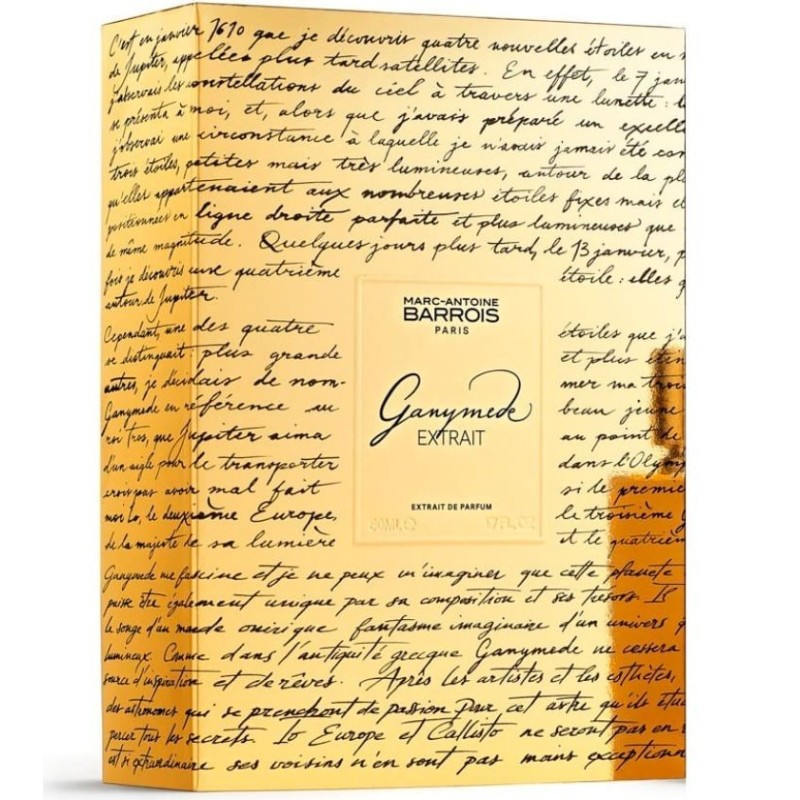 C'est en janvier 1610 que je découvris quatre nouvelles étoiles en
de Jupiter, appelées plus tard satellites. En effet, le 7 jan
j'observais les constellations du ciel à travers une lunette :
se présenta à moi, et, alors que j'avais préparé un excell
j'observai une circonstance à laquelle je n'avais jamais été
trois étoiles, petites mais très lumineuses, autour de la pl
qu'elles appartenaient aux nombreuses étoiles fixes mais
positionnées en ligne droite parfaite et plus lumineuses que
de même magnitude. Quelques jours plus tard, le 13 janvier, p
fois je découvris une quatrième étoile : elles
autour de Jupiter.
MARC-ANTOINE
BARROIS
PARIS
Ganymede
EXTRAIT
EXTRAIT DE PARFUM
50ML℮ 1.7FL.OZ
Cependant, une des quatre étoiles que j'a
se distinguait : plus grande et plus
autres, je décidais de nom- mer ma trois
Ganymede en référence au beau jeune
roi Tros, que Jupiter aima au point de
d'un aigle pour le transporter dans l'Olymp
crois pas avoir mal fait si le premie
moi Io, le deuxième Europe, le troisième G
de la majesté de sa lumière et le quatrièm
Ganymede me fascine et je ne peux m'imaginer que cette planète
puisse être également unique par sa composition et ses trésors. Il
le songe d'un monde onirique fantasme imaginaire d'un univers
lumineux. Comme dans l'antiquité grecque Ganymede ne cessera
source d'inspiration et de rêves. Après les artistes et les esthètes,
des astronomes qui se prenchont de passion pour cet astre qu'ils étu
percer tous les secrets. Io Europe et Callisto ne seront pas en
est si extraordinaire ses voisins n'en sont pas moins exceptionn